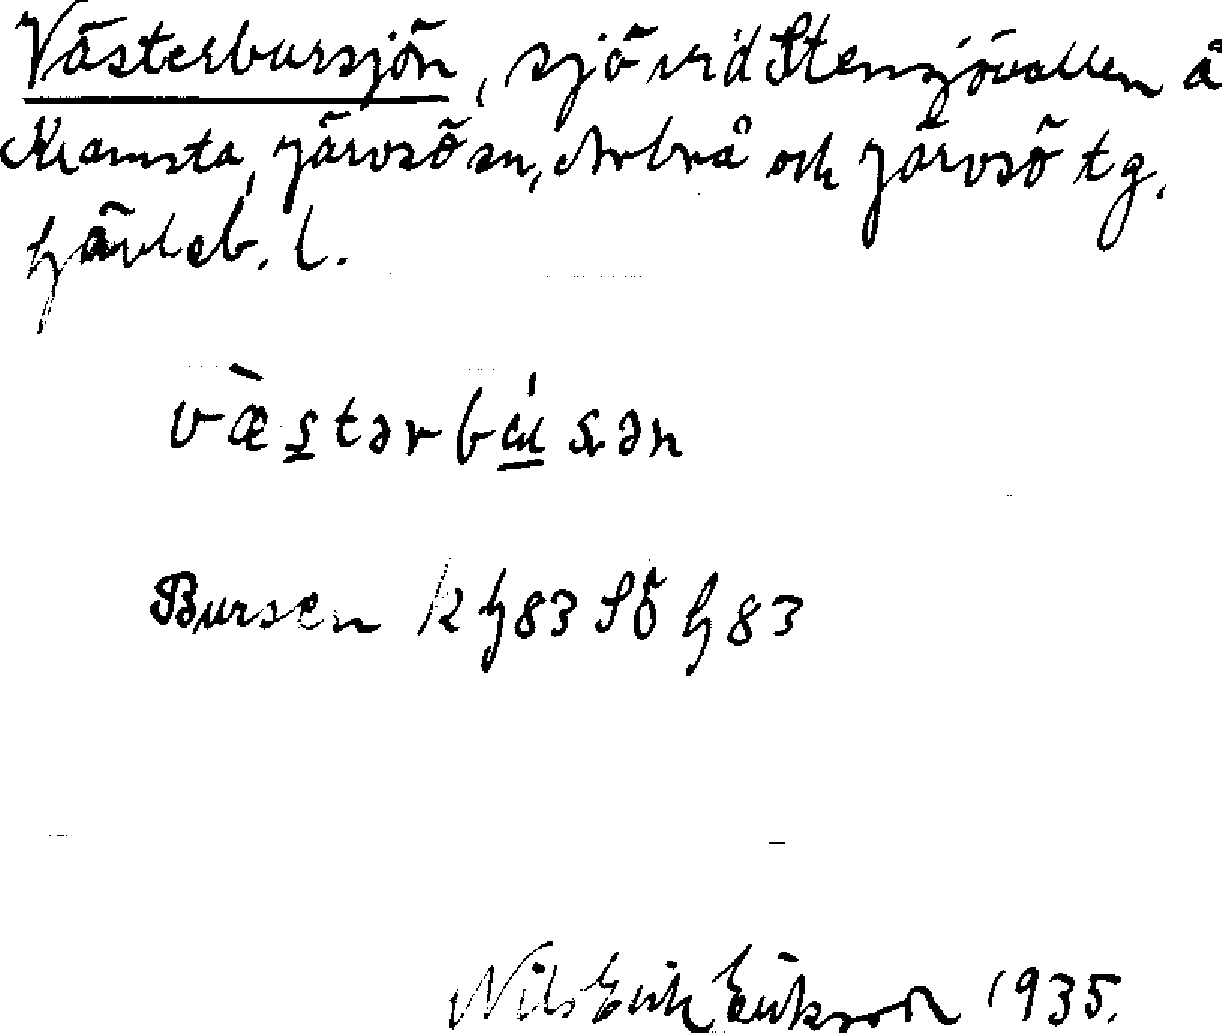 Västerbursjön, sjö vid Stensjövallen å
Kramsta, Järvsö sn, Arbrå och Järvsö tg,
Gävleb. l.
væstərbʉsən
Bursen k G83 SÖ G83
Nils Erik Eriksson 1935.